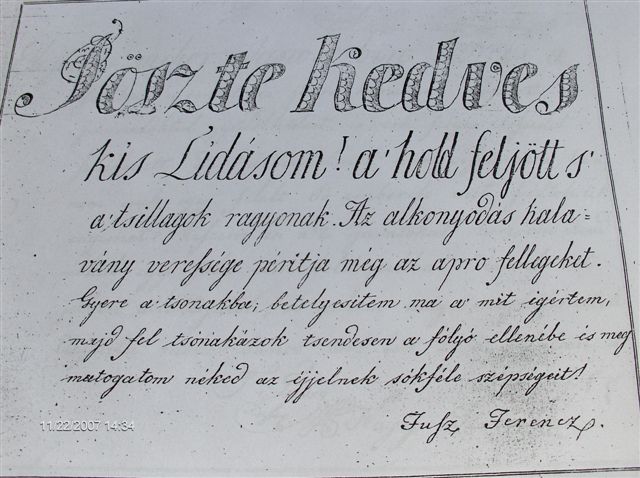 Jösz te kedves
kis Lidásom! a' hold feljött s'
a' tsillagok ragyonak. Az alkonyodás hala=
vány veressége péritja még az apro fellegeket.
Gyere a' tsonakba; betelyesitem ma a mit igértem,
majd fel tsónakázok tsendesen a folyó ellenébe és meg
mutogatom néked az éjjelnek sokféle szépségeit!
Jusz Ferencz.
11.22.2007 14:34